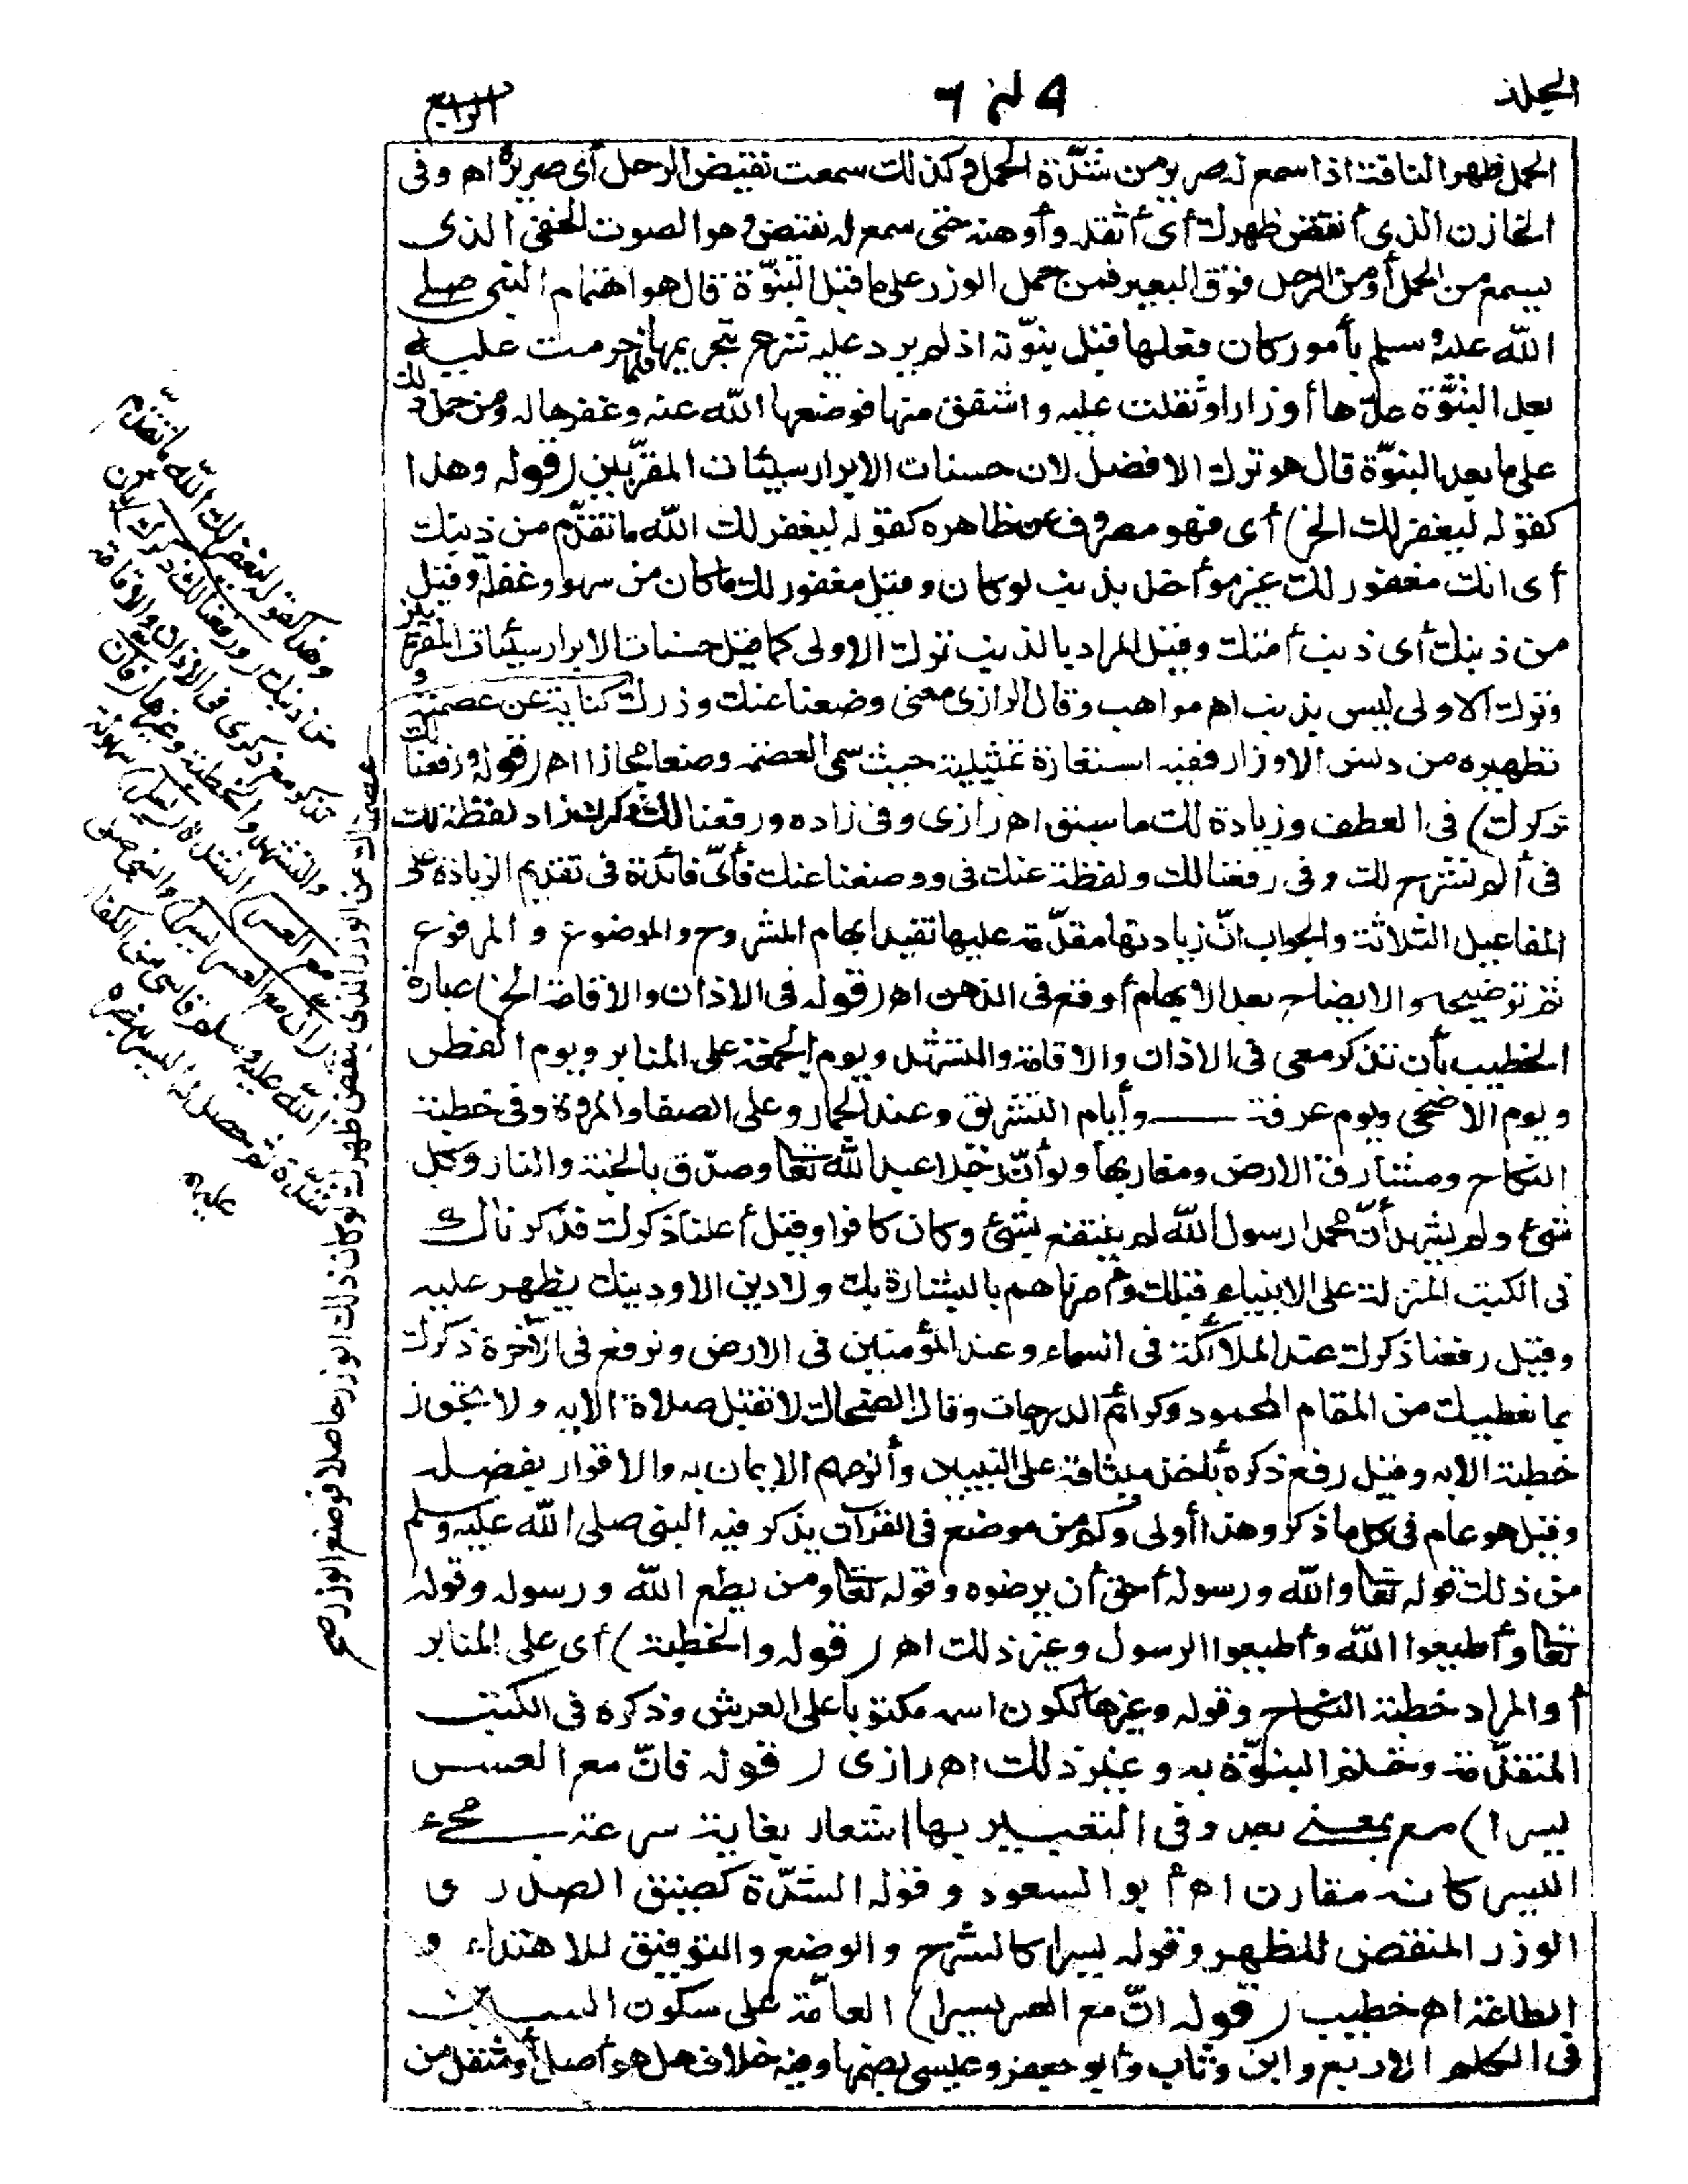 المجلد
الرابع
الحمل ظهر الناقة اذا سمع له صرير من شدّة الحمل وكذلك سمعت نقيض الرحل أى صريره اه وفى
الخازن الذى أنقض ظهرك أى أثقله وأوهنه حتى سمع له نقيض وهو الصوت الخفى الذى
يسمع من المحمل أو من الرحل فوق البعير فمن حمل الوزر على ما قبل النبوّة قال هو اهتمام النبى صلى
الله عليه وسلم بأمور كان فعلها قبل نبوّته اذ لم يرد عليه شرع بتحريمها فلما حرمت عليه
بعد النبوّة عدّها أوزارا وثقلت عليه واشفق منها فوضعها الله عنه وغفرها له ومن حمل ذلك
على ما بعد النبوّة قال هو ترك الافضل لان حسنات الابرار سيئات المقرّبين (قوله وهذا
كقوله ليغفر لك الخ) أى فهو مصروف عن ظاهره كقوله ليغفر لك الله ما تقدّم من ذنبك
أى انك مغفور لك غير مؤاخذ بذنب لو كان وقيل مغفور لك ما كان من سهو وغفلة وقيل
من ذنبك أى ذنب أمتك وقيل المراد بالذنب ترك الاولى كما قيل حسنات الابرار سيئات المقربين
وترك الاولى ليس بذنب اه مواهب وقال الرازى معنى وضعنا عنك وزرك كناية عن عصمته و
تطهيره من دنس الاوزار ففيه استعارة تمثيلية حيث سمى العصمة وضعا مجازا اه (قوله ورفعنا لك
ذكرك) فى العطف وزيادة لك ما سبق اه رازى وفى زاده ورفعنا لك ذكرك زاد لفظة لك
فى ألم نشرح لك وفى رفعنا لك ولفظة عنك فى ووضعنا عنك فأىّ فائدة فى تقديم الزيادة على
المفاعيل الثلاثة والجواب انّ زيادتها مقدّمة عليها تفيد ابهام المشروح والموضوع والمرفوع
ثم توضيحه والايضاح بعد الابهام أوقع فى الذهن اه (قوله فى الاذان والاقامة الخ) عبارة
الخطيب بأن تذكر معى فى الاذان والاقامة والتشهد ويوم الجمعة على المنابر ويوم الفطر
ويوم الاضحى ويوم عرفة وأيام التشريق وعند الجمار وعلى الصفا والمروة وفى خطبة
النكاح ومشارق الارض ومغاربها ولو أنّ رجلا عبد الله تعا وصدّق بالجنة والنار وكل
شئ ولم يشهد أنّ محمدا رسول الله لم ينتفع بشئ وكان كافرا وقيل أعلنا ذكرك فذكرناك
فى الكتب المنزلة على الانبياء قبلك وأمرناهم بالبشارة بك ولا دين الا ودينك يظهر عليه
وقيل رفعنا ذكرك عند الملائكة فى السماء وعند المؤمنين فى الارض ونرفع فى الآخرة ذكرك
بما نعطيك من المقام المحمود وكرائم الدرجات وقال الضحاك لا تقبل صلاة الا به ولا تجوز
خطبة الا به وقيل رفع ذكره بأخذ ميثاقه على النبيين وألزمهم الايمان به والاقرار بفضله
وقيل هو عام فى كل ما ذكر وهذا أولى وكم من موضع فى القرآن يذكر فيه النبى صلى الله عليه وسلم
من ذلك قوله تعا والله ورسوله أحق أن يرضوه وقوله تعا ومن يطع الله ورسوله وقوله
تعا وأطيعوا الله وأطيعوا الرسول وغير ذلك اه (قوله والخطبة) أى على المنابر
أو المراد خطبة النكاح وقوله وغيرها ككون اسمه مكتوبا على العرش وذكره فى الكتب
المتقدّمة وختم النبوّة به وغير ذلك اه رازى (قوله فانّ مع العسر
يسرا) مع بمعنى بعد وفى التعبير بها اشعار بغاية سرعة مجىء
اليسر كانه مقارن اه أبو السعود وقوله الشدّة كضيق الصدر و
الوزر المنقض للظهر وقوله يسرا كالشرح والوضع والتوفيق للاهتداء و
الطاعة اه خطيب (قوله انّ مع العسر يسرا) العامّة على سكون السين
فى الكلم الاربع وابن وثاب وأبو جعفر وعيسى بضمها وفيه خلاف هل هو أصل أو مثقل من
وهذا كقوله ليغفر لك الله ما تقدّم
من ذنبك (ورفعنا لك ذكرك) بأن
تذكر مع ذكرى فى الاذان والاقامة
والتشهد والخطبة وغيرها (فانّ
مع العسر) الشدّة (يسرا) سهولة
(انّ مع العسر يسرا) والنبى صلى
الله عليه وسلم قاسى من الكفار
شدّة ثم حصل له اليسر بنصره
عليهم
عصمتك من الوزر الذى ينقض ظهرك لو كان ذلك الوزر حاصلا فوضع الوزر